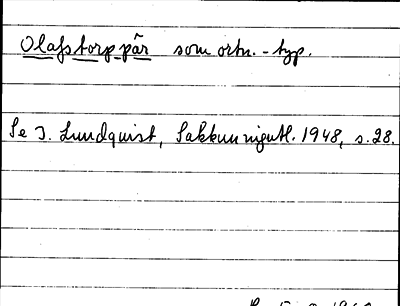 Olafstorp pår som ortn.-typ.
Se I. Lundquist, Sakkunnigutl. 1948, s. 28.